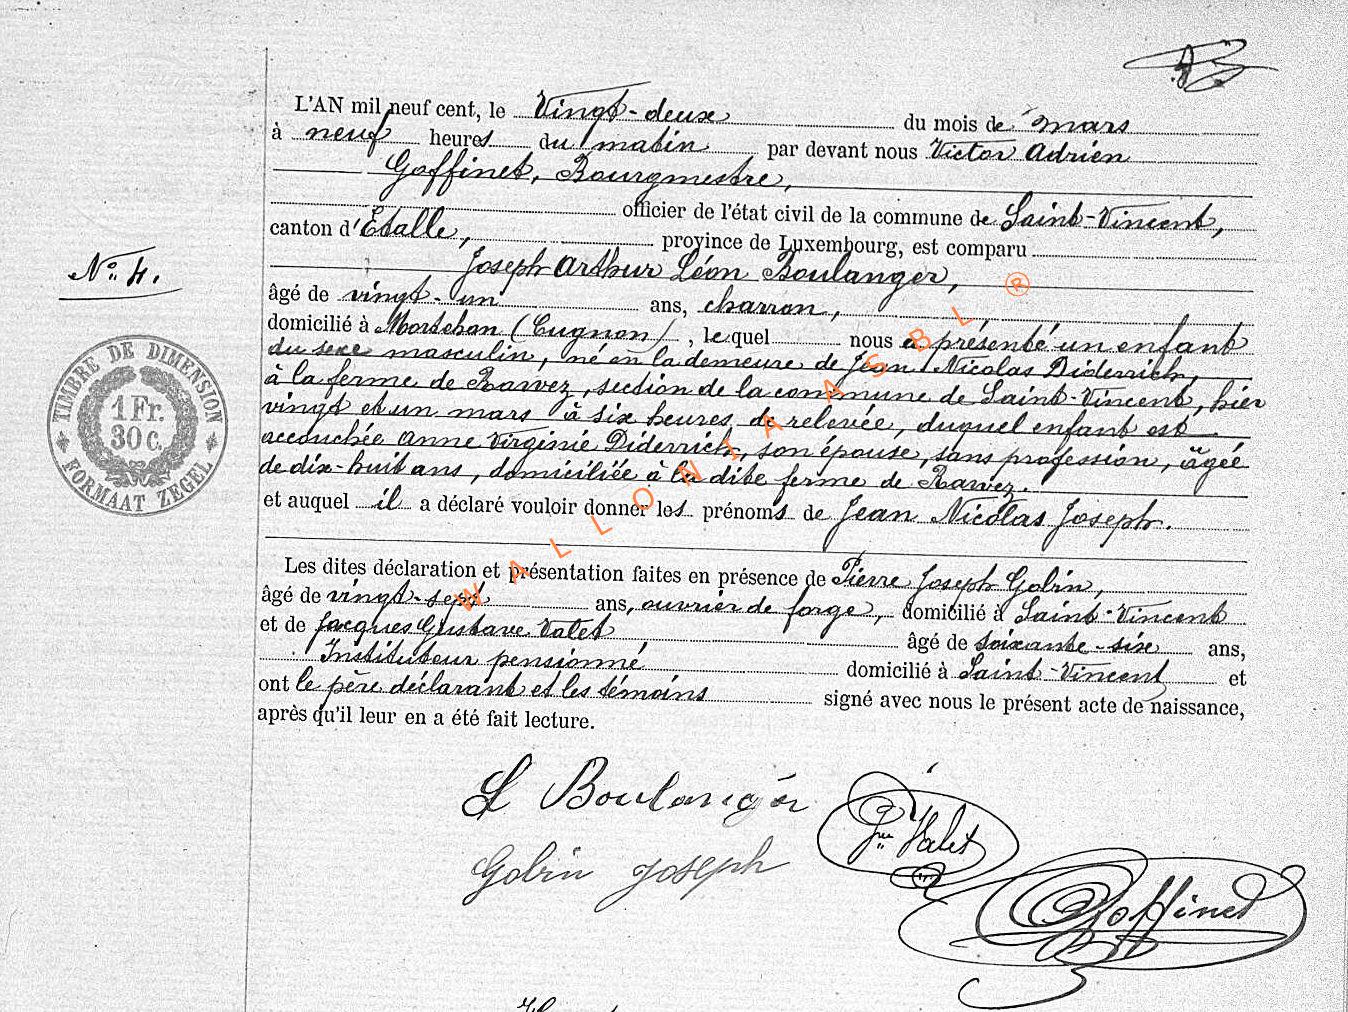 L'AN mil neuf cent, le Vingt-deux du mois de mars
à neuf heures du matin par devant nous Victor Adrien
Goffinet, Bourgmestre,
officier de l'état civil de la commune de Saint-Vincent,
canton d'Etalle, province de Luxembourg, est comparu
Joseph Arthur Léon Boulanger,
N° 4.
âgé de vingt-un ans, charron,
domicilié à Mortehan (Cugnon), lequel nous a présenté un enfant
du sexe masculin, né en la demeure de Jean Nicolas Diderrich,
à la ferme de Rawez, section de la commune de Saint-Vincent, hier
vingt et un mars à six heures de relevée, duquel enfant est
accouchée Anne Virginie Diderrich, son épouse, sans profession, âgée
de dix-huit ans, domiciliée à la dite ferme de Rawez.
et auquel il a déclaré vouloir donner les prénoms de Jean Nicolas Joseph.
TIMBRE DE DIMENSION
1 Fr.
30 C.
FORMAAT ZEGEL
WALLONIA ASBL ®
Les dites déclaration et présentation faites en présence de Pierre Joseph Gobin,
âgé de vingt-sept ans, ouvrier de forge, domicilié à Saint-Vincent
et de Jacques Gustave Valet âgé de soixante-six ans,
Instituteur pensionné domicilié à Saint-Vincent et
ont le père déclarant et les témoins signé avec nous le présent acte de naissance,
après qu'il leur en a été fait lecture.
L Boulanger
Valet
Gobin Joseph
Goffinet